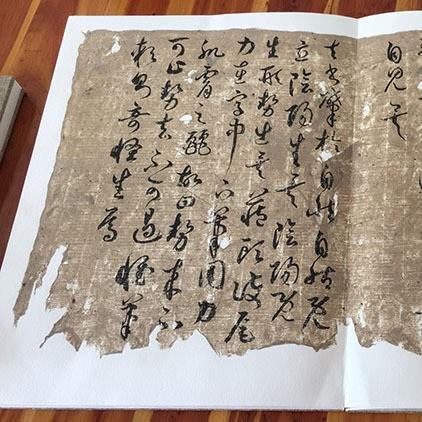 夫書肇於自然自然既
立陰陽生焉陰陽既
生形勢出矣藏頭護尾
力在字中下筆用力
肌膚之麗故曰勢來不
可止勢去不可遏惟筆
軟則奇怪生焉